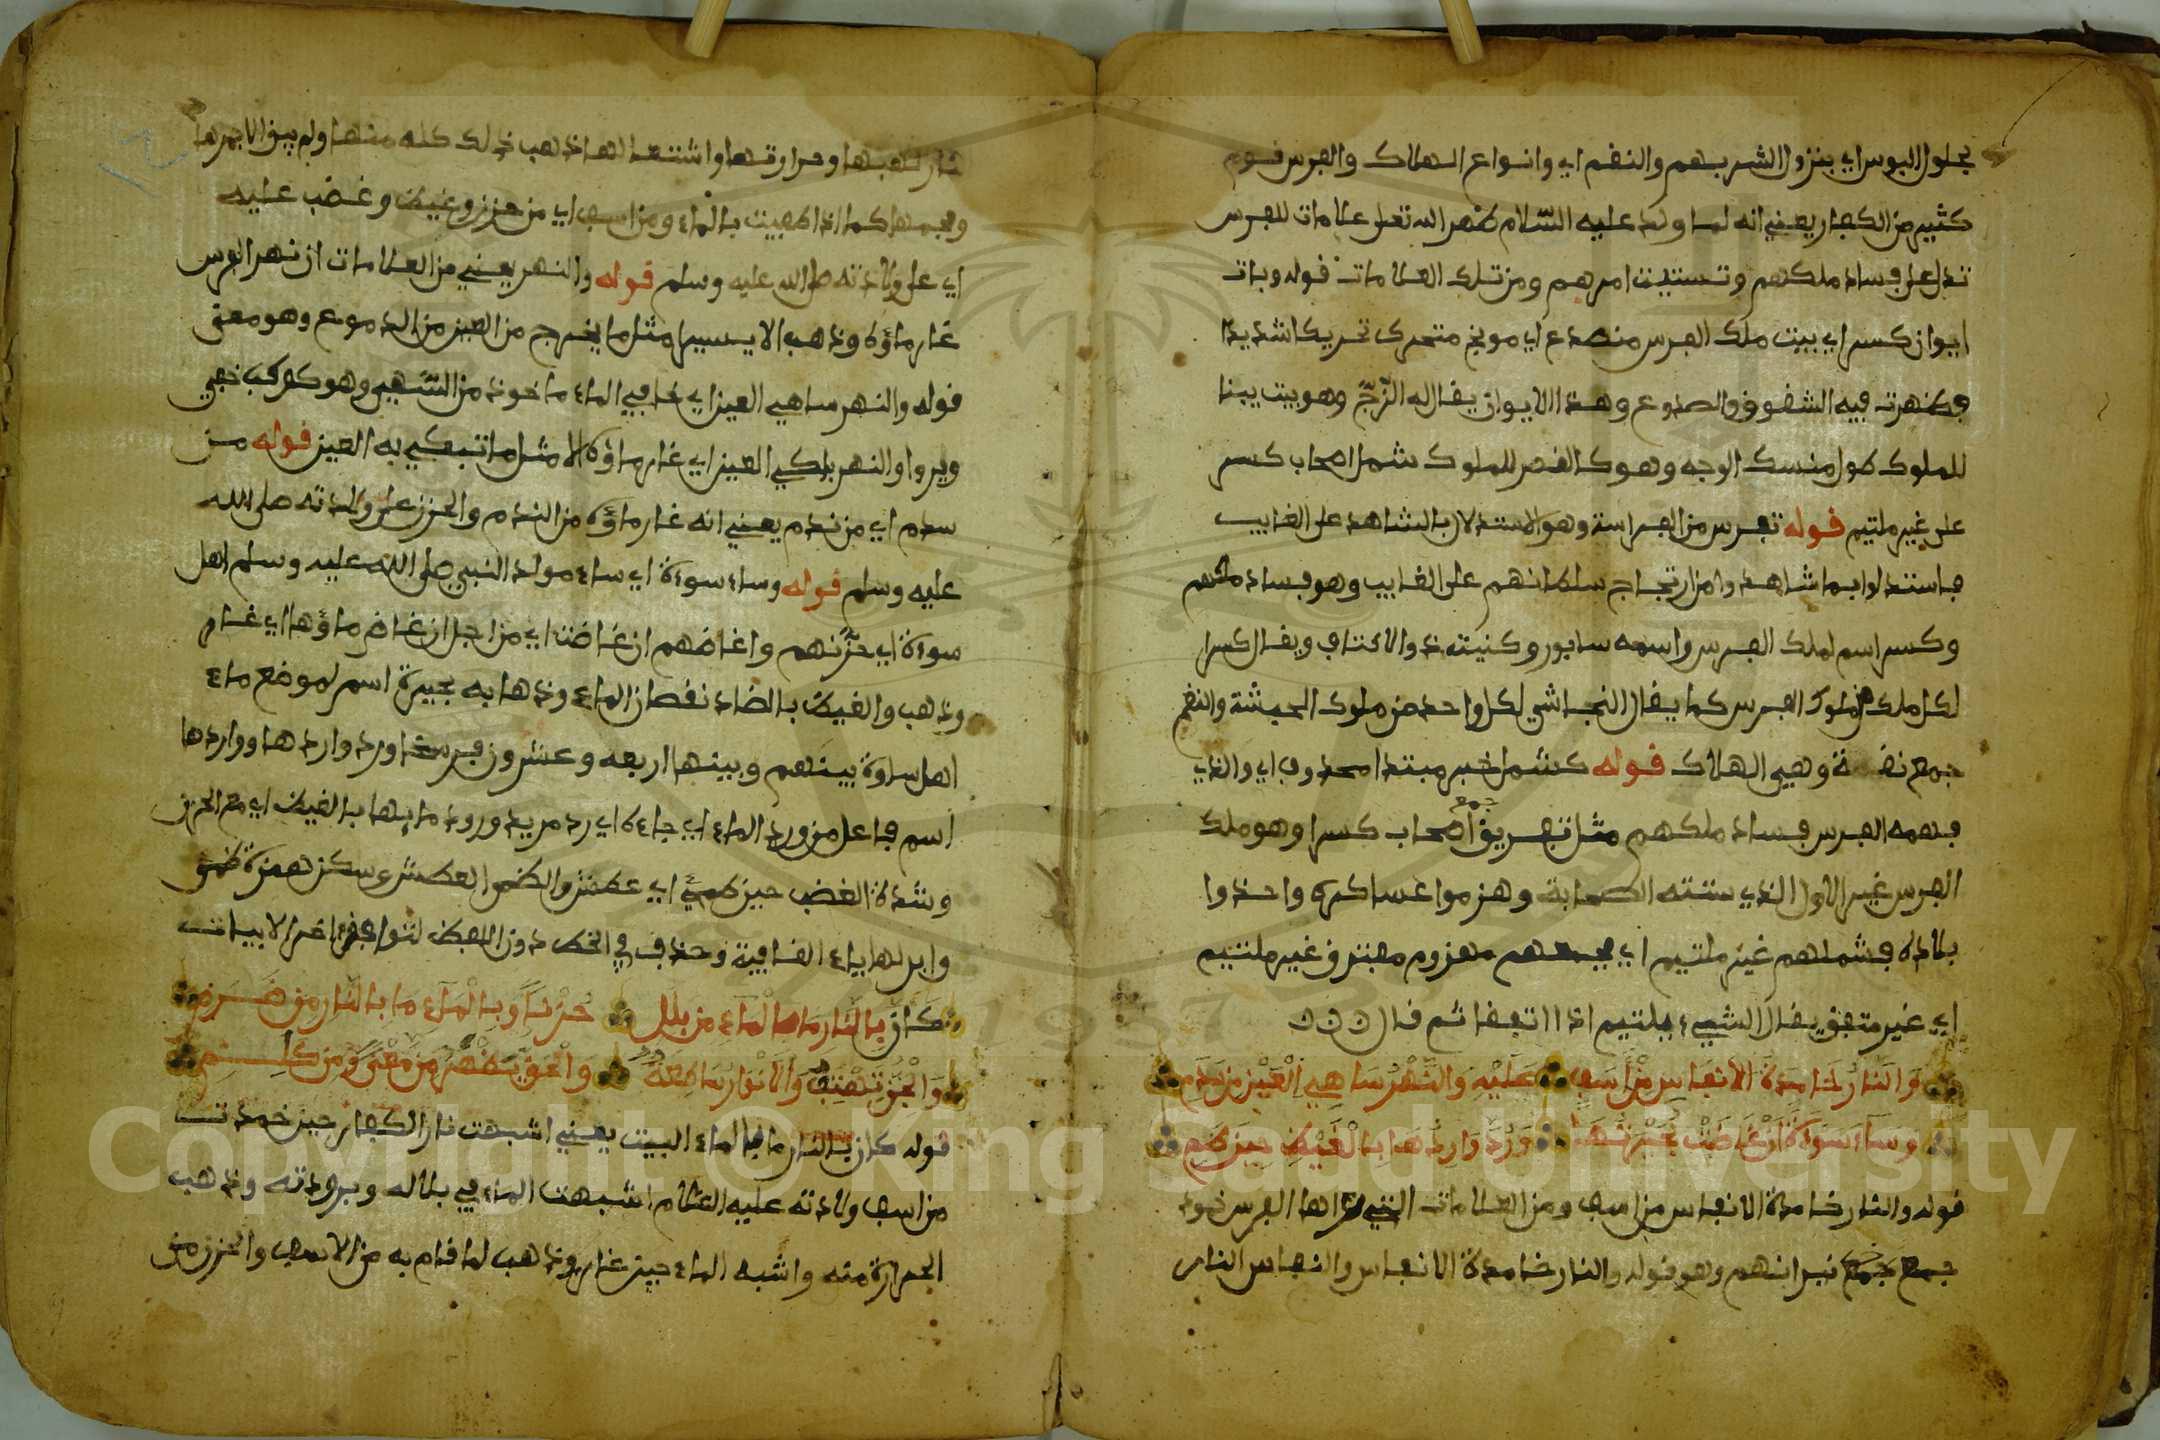 بحلول البوس اي بنزول الشر بهم والنقم اي وانواع الهلاك والفرس قوم
كثير من الكفار يعني انه لما ولد عليه السلام ظهر الله تعلى علامات للفرس
تدل على فساد ملكهم وتشتيت امرهم ومن تلك العلامات قوله وبات
ايوان كسرا اي بيت ملك الفرس منصدع اي متحرك تحريكا شديدا
فظهرت فيه الشقوق والصدوع وهذا الايوان يقال له الزج وهو بيت يبنا
للملوك طول الوجه وهو كالقصر للملوك شمل اصحاب كسر
على غير ملتيم قوله تفرس من الفراسة وهو الاستدلال بالشاهد على الغايب
فاستدلوا بما شاهدوا من ارتجاج سلطانهم على الغايب وهو فساد ملكهم
وكسرا اسم لملك الفرس واسمه سابور وكنيته ذو الاكتاف ويقال كسرا
لكل ملك من ملوك الفرس كما يقال النجاشي لكل واحد من ملوك الحبشة والنقم
جمع نقمة وهي الهلاك قوله كشمل خبر مبتدا محذوف اي والذي
فهمه الفرس فساد ملكهم مثل تفريق جمع اصحاب كسرا وهو ملك
الفرس غير الاول الذي شتته الصحابة وهزموا عساكره واخذوا
بلاده فشملهم غير ملتيم اي جمعهم مهزوم مفترق غير ملتيم
اي غير متفق يقال الشيء ملتيم اذا اتفقا ثم قال
وَالنَّارُ خَامِدَةُ الْأَنْفَاسِ مِنْ أَسَفٍ عَلَيْهِ وَالنَّهْرُ سَاهِي الْعَيْنِ مِنْ سَدَمِ
وَسَاءَ سَاوَةَ أَنْ غَاضَتْ بُحَيْرَتُهَا وَرُدَّ وَارِدُهَا بِالْغَيْظِ حِينَ ظَمِ
قوله والنار خامدة الانفاس من اسف ومن العلامات التي راها الفرس خمود
جمع نيرانهم وهو قوله والنار خامدة الانفاس والنفاس النار
نار لهبها وحرارتها واشتعالها ذهب ذلك كله منها ولم يبق الا جمرها
وفحمها كما اذا طفيت بالماء ومن اسف اي من حزن وغيظ وغضب عليه
اي على ولادته صلى الله عليه وسلم قوله والنهر يعني من العلامات ان نهر الفرس
غار ماؤه وذهب الا يسيرا مثل ما يخرج من العين من الدموع وهو معنى
قوله والنهر ساهي العين اي خافي الماء ماخوذ من السهي وهو كوكب خفي
ويروا والنهر باكي العين اي غار ماؤه الا مثل ما تبكي به العين قوله من
سدم اي من ندم يعني انه غار ماؤه من الندم والحزن على ولادته صلى الله
عليه وسلم قوله وساء سوة اي ساء مولد النبي صلى الله عليه وسلم اهل
سوة اي حزنهم واغاضهم ان غاضت اي من اجل ان غاض ماؤها اي غار
وذهب والغيض بالضاد نقصان الماء وذهابه بحيرة اسم لموضع ماء
اهل ساوة بينهم وبينها اربعه وعشرون فرسخا ورد واردها وواردها
اسم فاعل من ورد الماء اي جاءه اي رد مريد ورود مايها بالغيظ اي مع الحزن
وشدة الغضب حين ظمي اي عطش والظما العطش سكن همزة ظمئ
وابدلها ياء القافية وحذف في الخط دون اللفظ اخر الابيات
كَأَنَّ بِالنَّارِ مَا بِالْمَاءِ مِنْ بَلَلٍ حُزْنًا وَبِالْمَاءِ مَا بِالنَّارِ مِنْ ضَرَمِ
وَالْجِنُّ تَهْتِفُ وَالْأَنْوَارُ سَاطِعَةٌ وَالْحَقُّ يَظْهَرُ مِنْ مَعْنًى وَمِنْ كَلِمِ
قوله كان بالنار ما بالماء البيت يعني اشبهت نار الكفار حين خمدت
من اسف ولادته عليه السلام اشبهت الماء في بلاله وبرودته وذهب
الحرارة منه واشبه الماء حين غار وذهب لما قام به من الاسف والحزن من